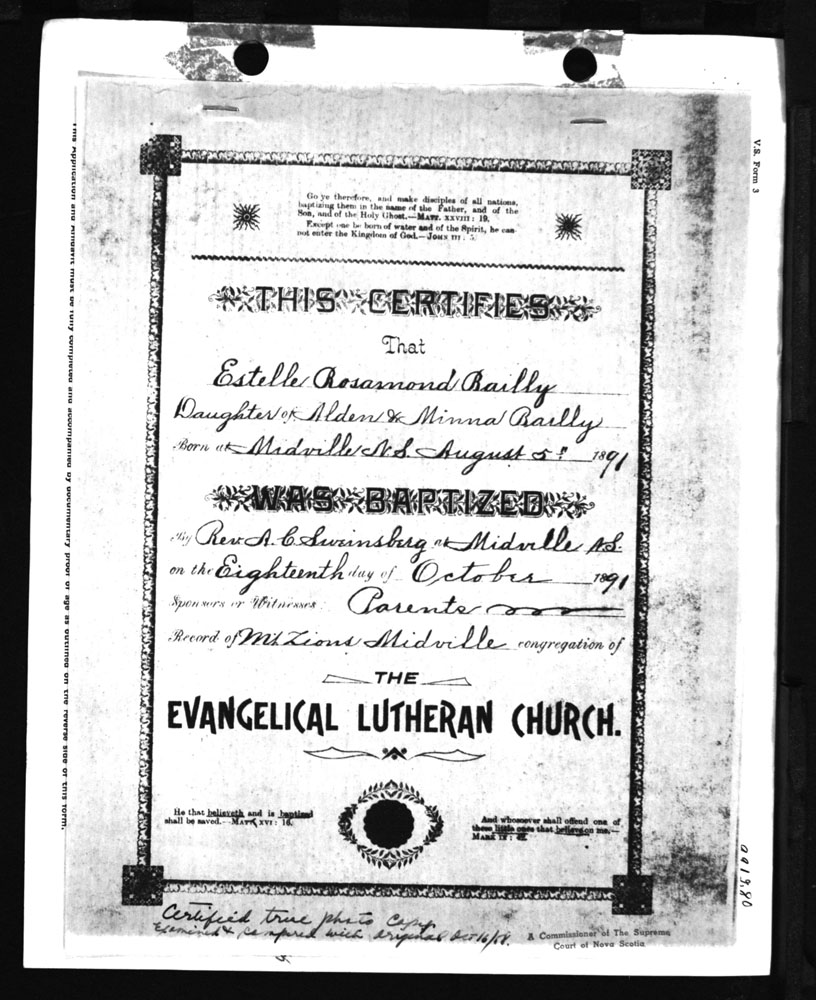 Go ye therefore, and make disciples of all nations,
baptizing them in the name of the Father, and of the
Son, and of the Holy Ghost.—MATT. XXVIII: 19.
Except one be born of water and of the Spirit, he can
not enter the Kingdom of God.—JOHN III: 5.
THIS CERTIFIES
That
Estelle Rosamond Railly
Daughter of Alden & Minna Railly
Born at Midville N.S. August 5th 1891
WAS BAPTIZED
By Rev. A. C. Sweinsberg at Midville N.S.
on the Eighteenth day of October 1891
Sponsors or Witnesses: Parents
Record of Mt. Zions Midville congregation of
THE
EVANGELICAL LUTHERAN CHURCH.
He that believeth and is baptized
shall be saved.—MATT XVI: 16.
And whosoever shall offend one of
these little ones that believe on me.—
MARK IX:
Certified true photo copy
Examined & compared with original Oct 16/58.
A Commissioner of The Supreme
Court of Nova Scotia
V.S. Form 3
This Application and Affidavit must be fully completed and accompanied by documentary proof of age as outlined on the reverse side of this form.